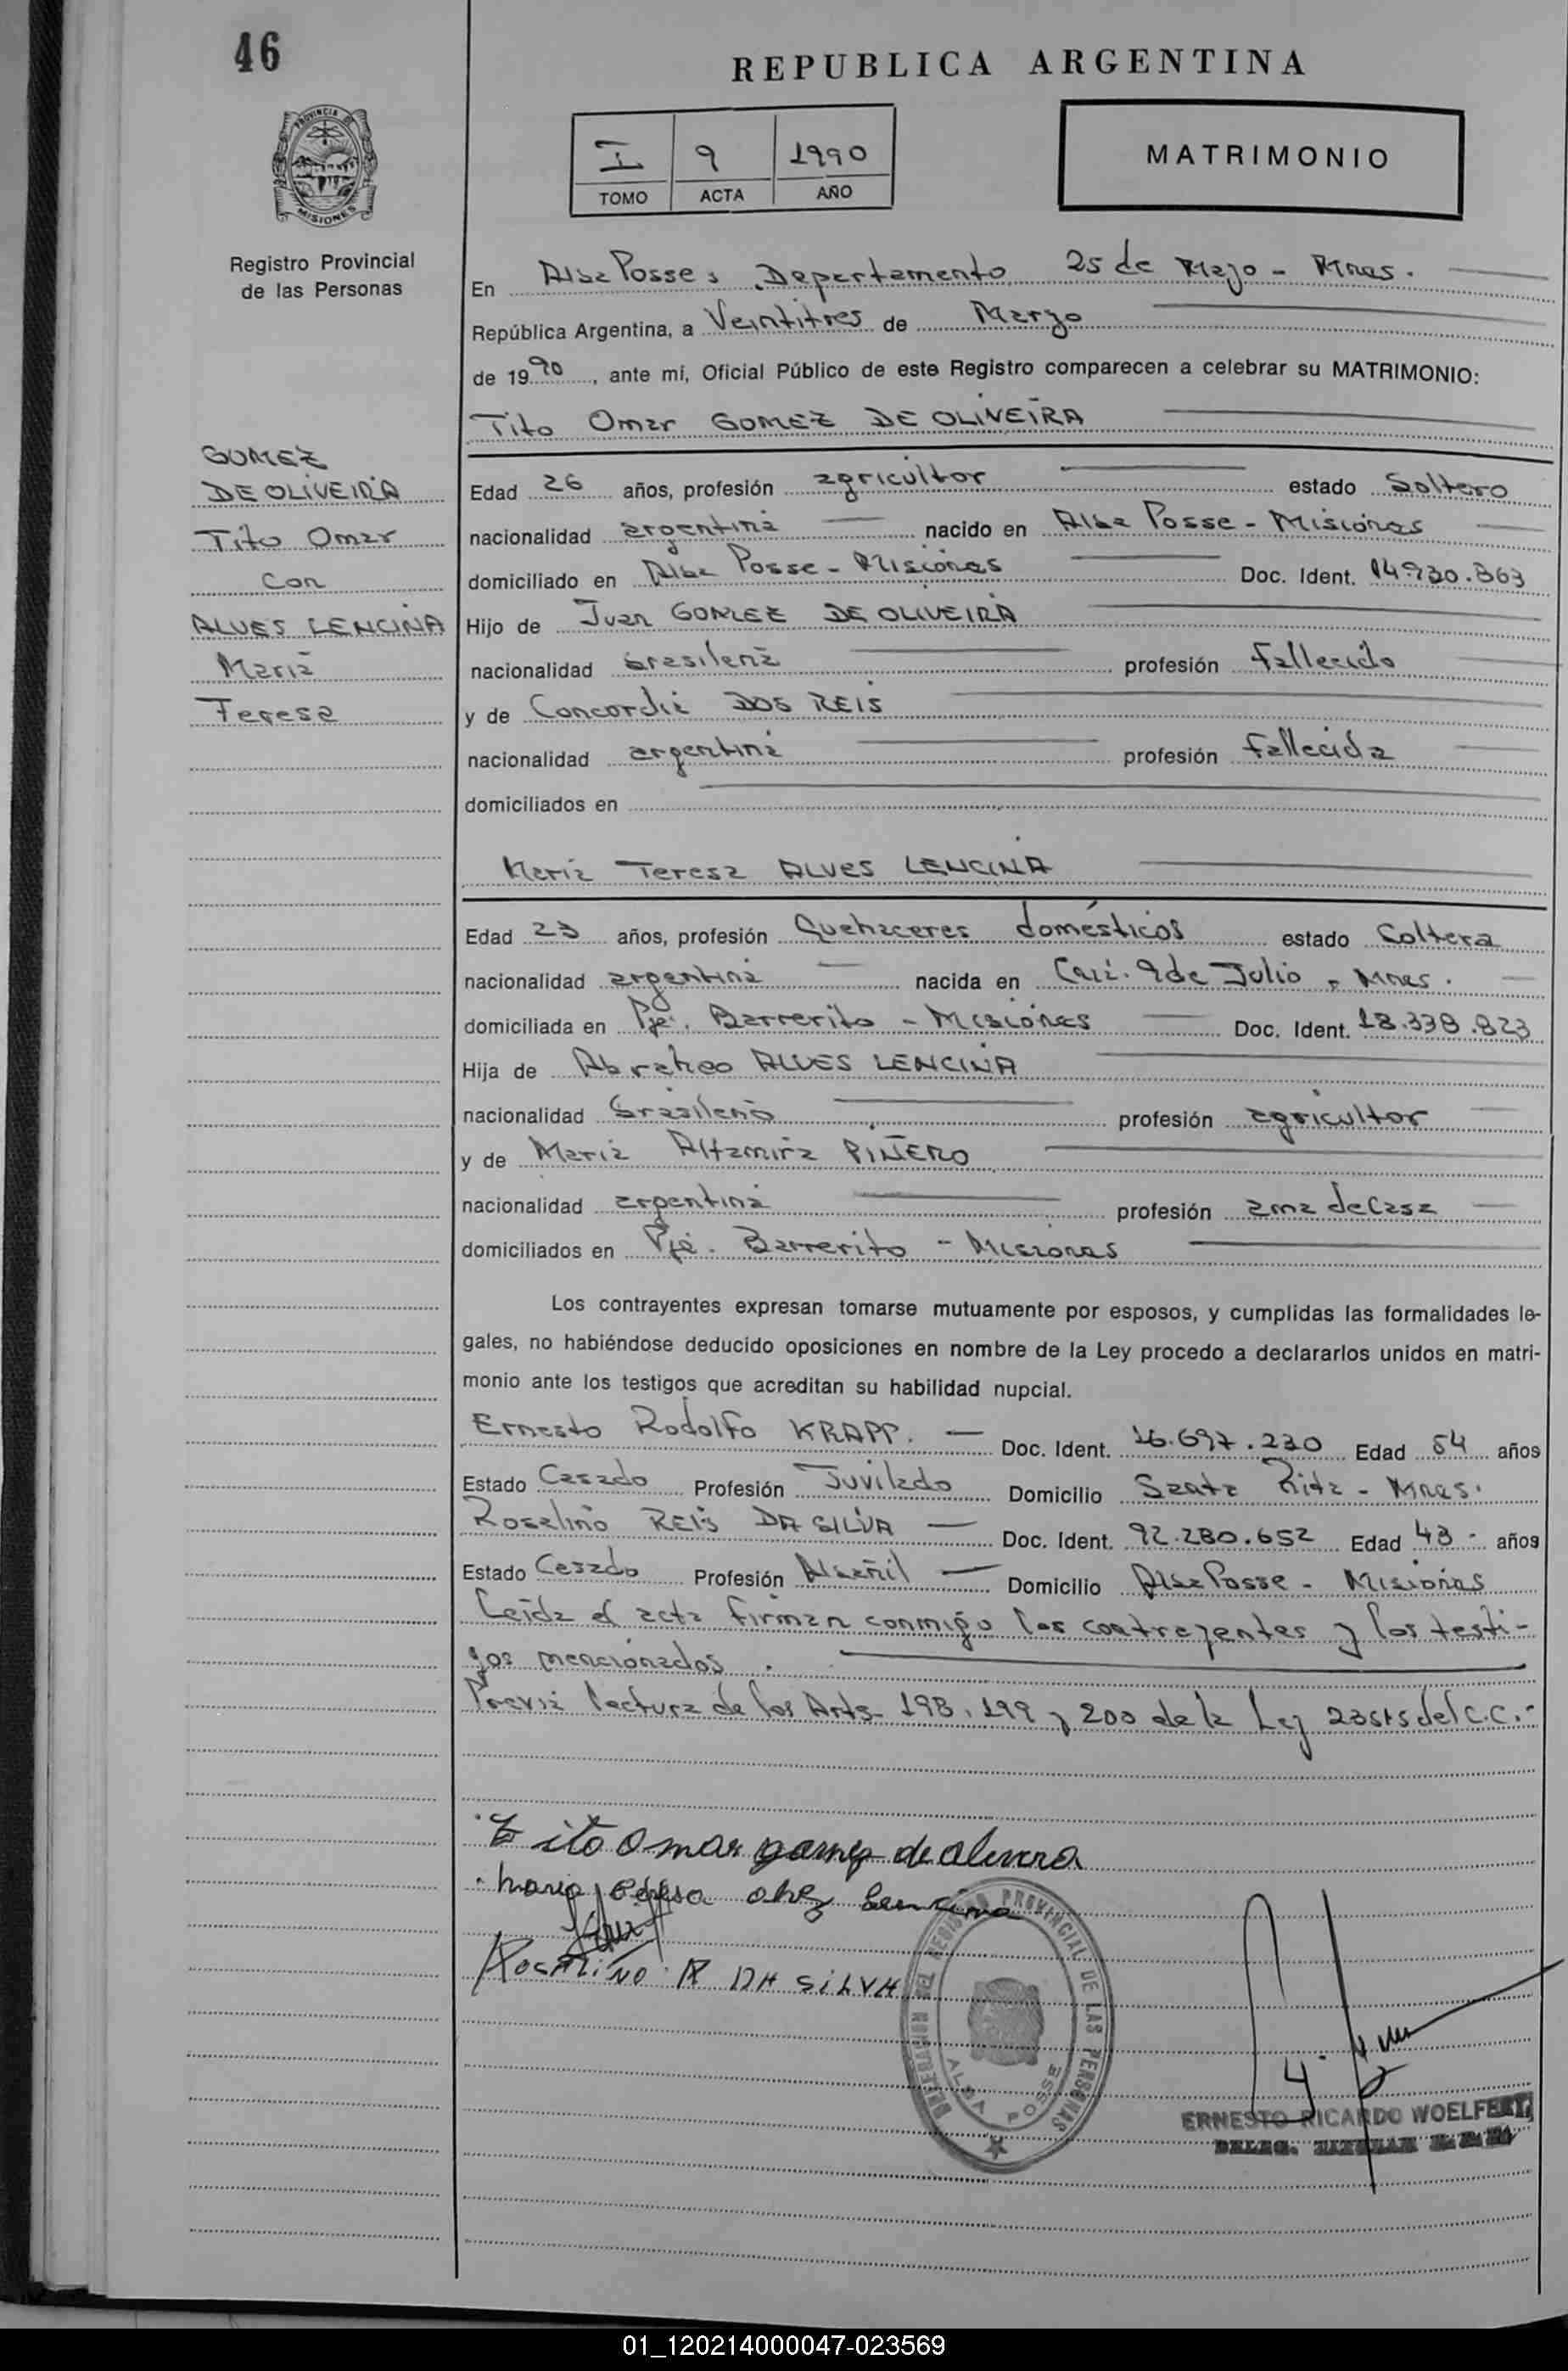 46
REPUBLICA ARGENTINA
PROVINCIA DE
MISIONES
I 9 1990
TOMO ACTA AÑO
MATRIMONIO
Registro Provincial
de las Personas
En Alba Posse, Departamento 25 de Mayo - Mnes.
República Argentina, a Veintitres de Marzo
de 1990, ante mí, Oficial Público de este Registro comparecen a celebrar su MATRIMONIO:
Tito Omar GOMEZ DE OLIVEIRA
GOMEZ
DE OLIVEIRA
Tito Omar
Con
ALVES LENCINA
Maria
Teresa
Edad 26 años, profesión agricultor estado Soltero
nacionalidad argentina nacido en Alba Posse - Misiones
domiciliado en Alba Posse - Misiones Doc. Ident. 14.930.863
Hijo de Juan GOMEZ DE OLIVEIRA
nacionalidad brasilena profesión fallecido
y de Concordia DOS REIS
nacionalidad argentina profesión fallecida
domiciliados en
Maria Teresa ALVES LENCINA
Edad 23 años, profesión Quehaceres domésticos estado Soltera
nacionalidad argentina nacida en 9 de Julio - Mnes.
domiciliada en Pje. Barrerito - Misiones Doc. Ident. 18.338.823
Hija de Abrahao ALVES LENCINA
nacionalidad brasileno profesión agricultor
y de Maria Altamira PIÑERO
nacionalidad argentina profesión ama de Casa
domiciliados en Pje. Barrerito - Misiones
Los contrayentes expresan tomarse mutuamente por esposos, y cumplidas las formalidades le-
gales, no habiéndose deducido oposiciones en nombre de la Ley procedo a declararlos unidos en matri-
monio ante los testigos que acreditan su habilidad nupcial.
Ernesto Rodolfo KRAPP. Doc. Ident. 16.697.230 Edad 54 años
Estado Casado Profesión Juvilado Domicilio Santa Rita - Mnes.
Roselino REIS DA SILVA Doc. Ident. 92.280.652 Edad 43 años
Estado Casado Profesión Albañil Domicilio Alba Posse - Misiones
Leida el acta firman conmigo los contrayentes y los testi-
gos mencionados.
Previa lectura de los Arts. 198, 199 y 200 de la Ley 23515 del C.C.-
Tito Omar gomez de olivera
maria teresa alvez lencina
ROSALINO R DA SILVA
REGISTRO PROVINCIAL DE LAS PERSONAS
ALBA POSSE
ERNESTO RICARDO WOELFERT
DELEG. TITULAR
01_120214000047-023569